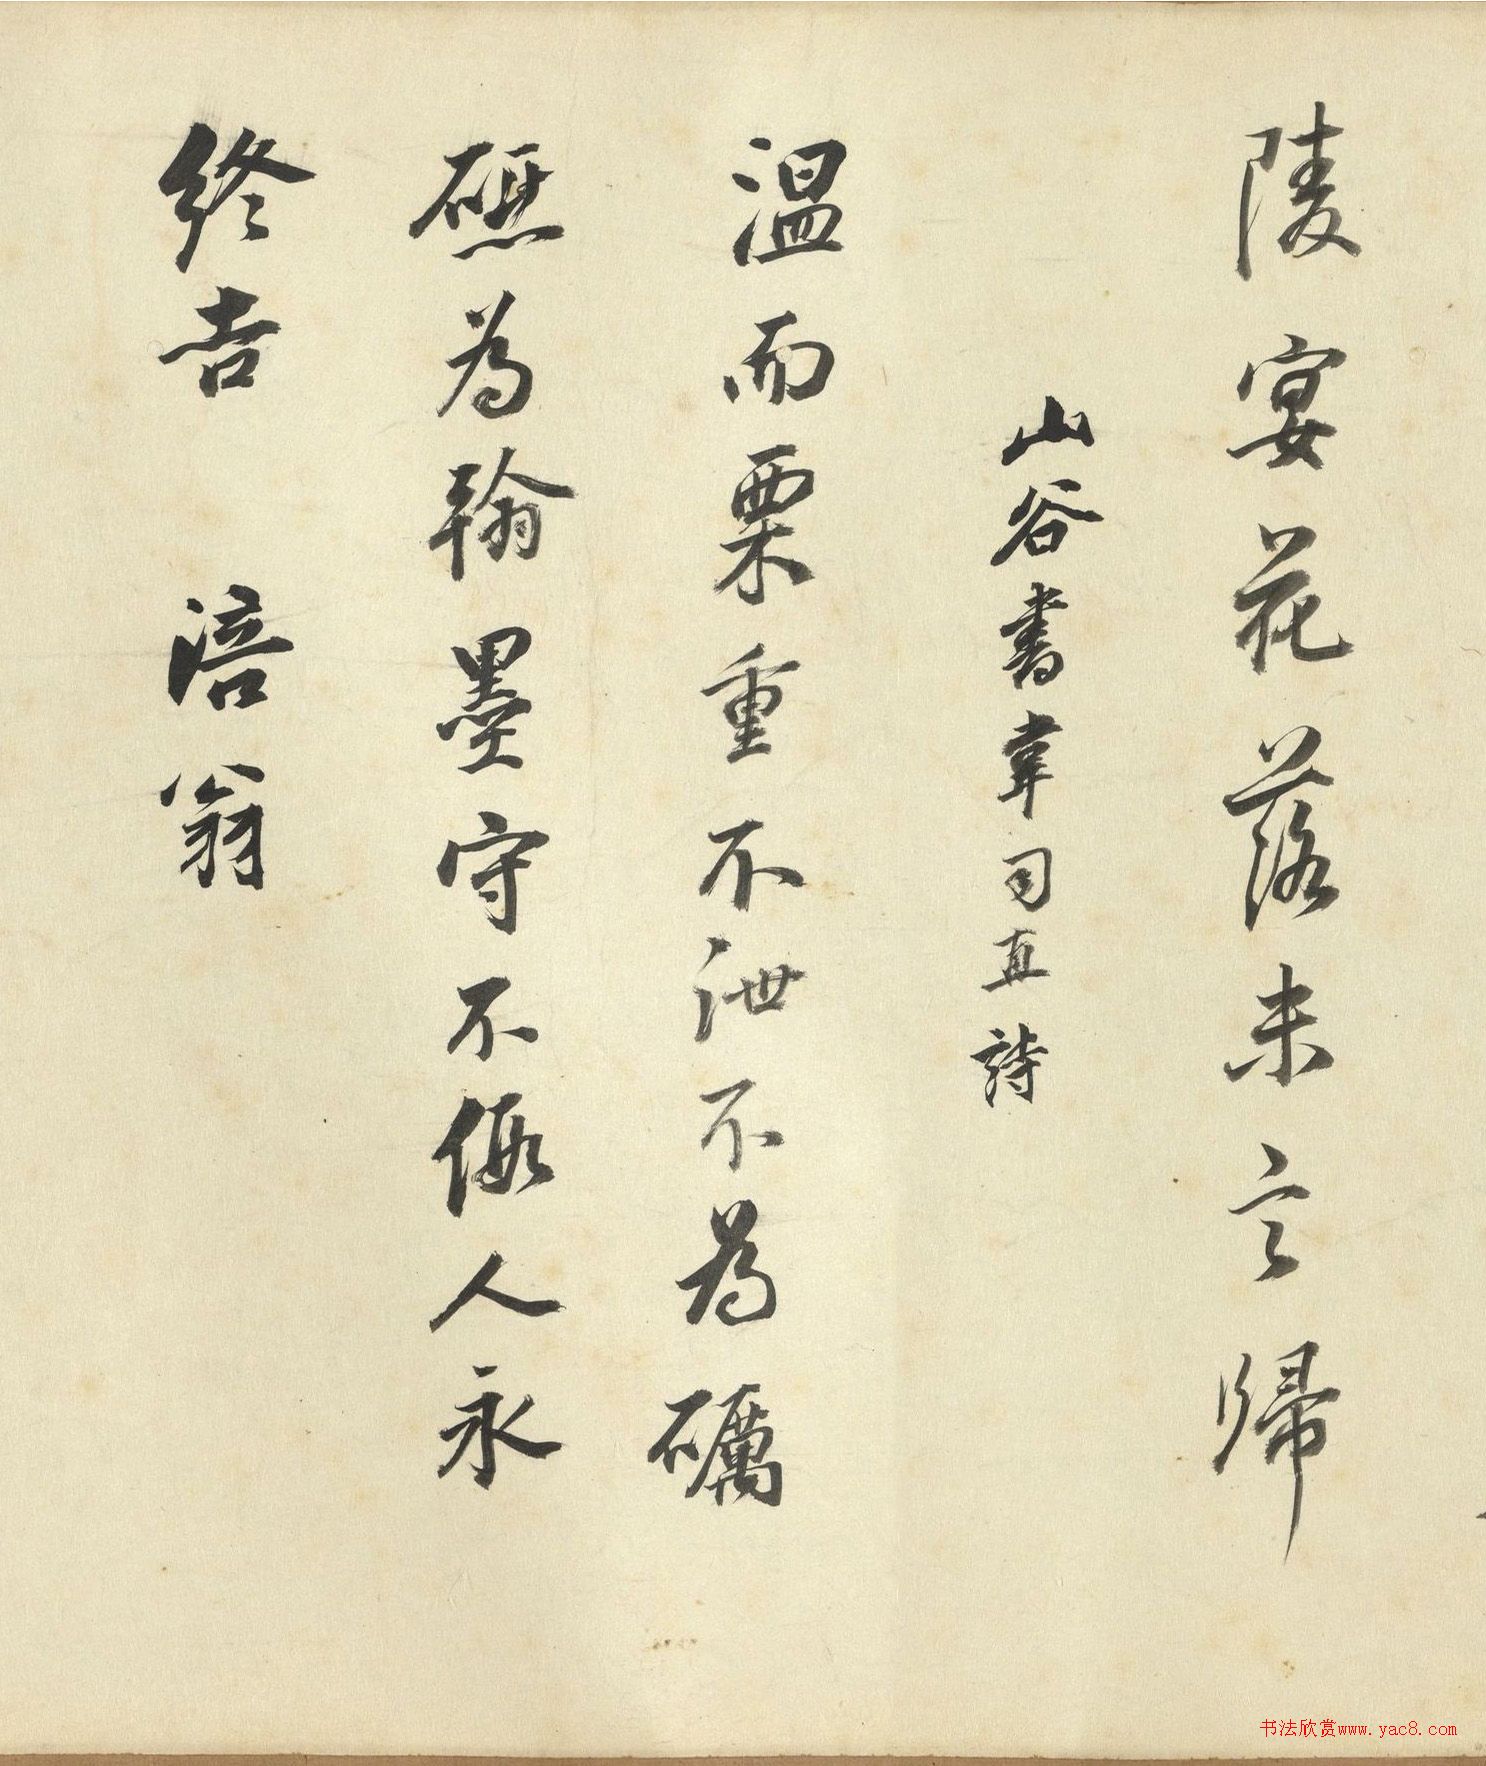 陵宴花落未言歸
山谷書韋司直詩
温而栗重不泄不為礪
礁為翰墨守不假人永
終吉 涪翁
书法欣赏www.yac8.com